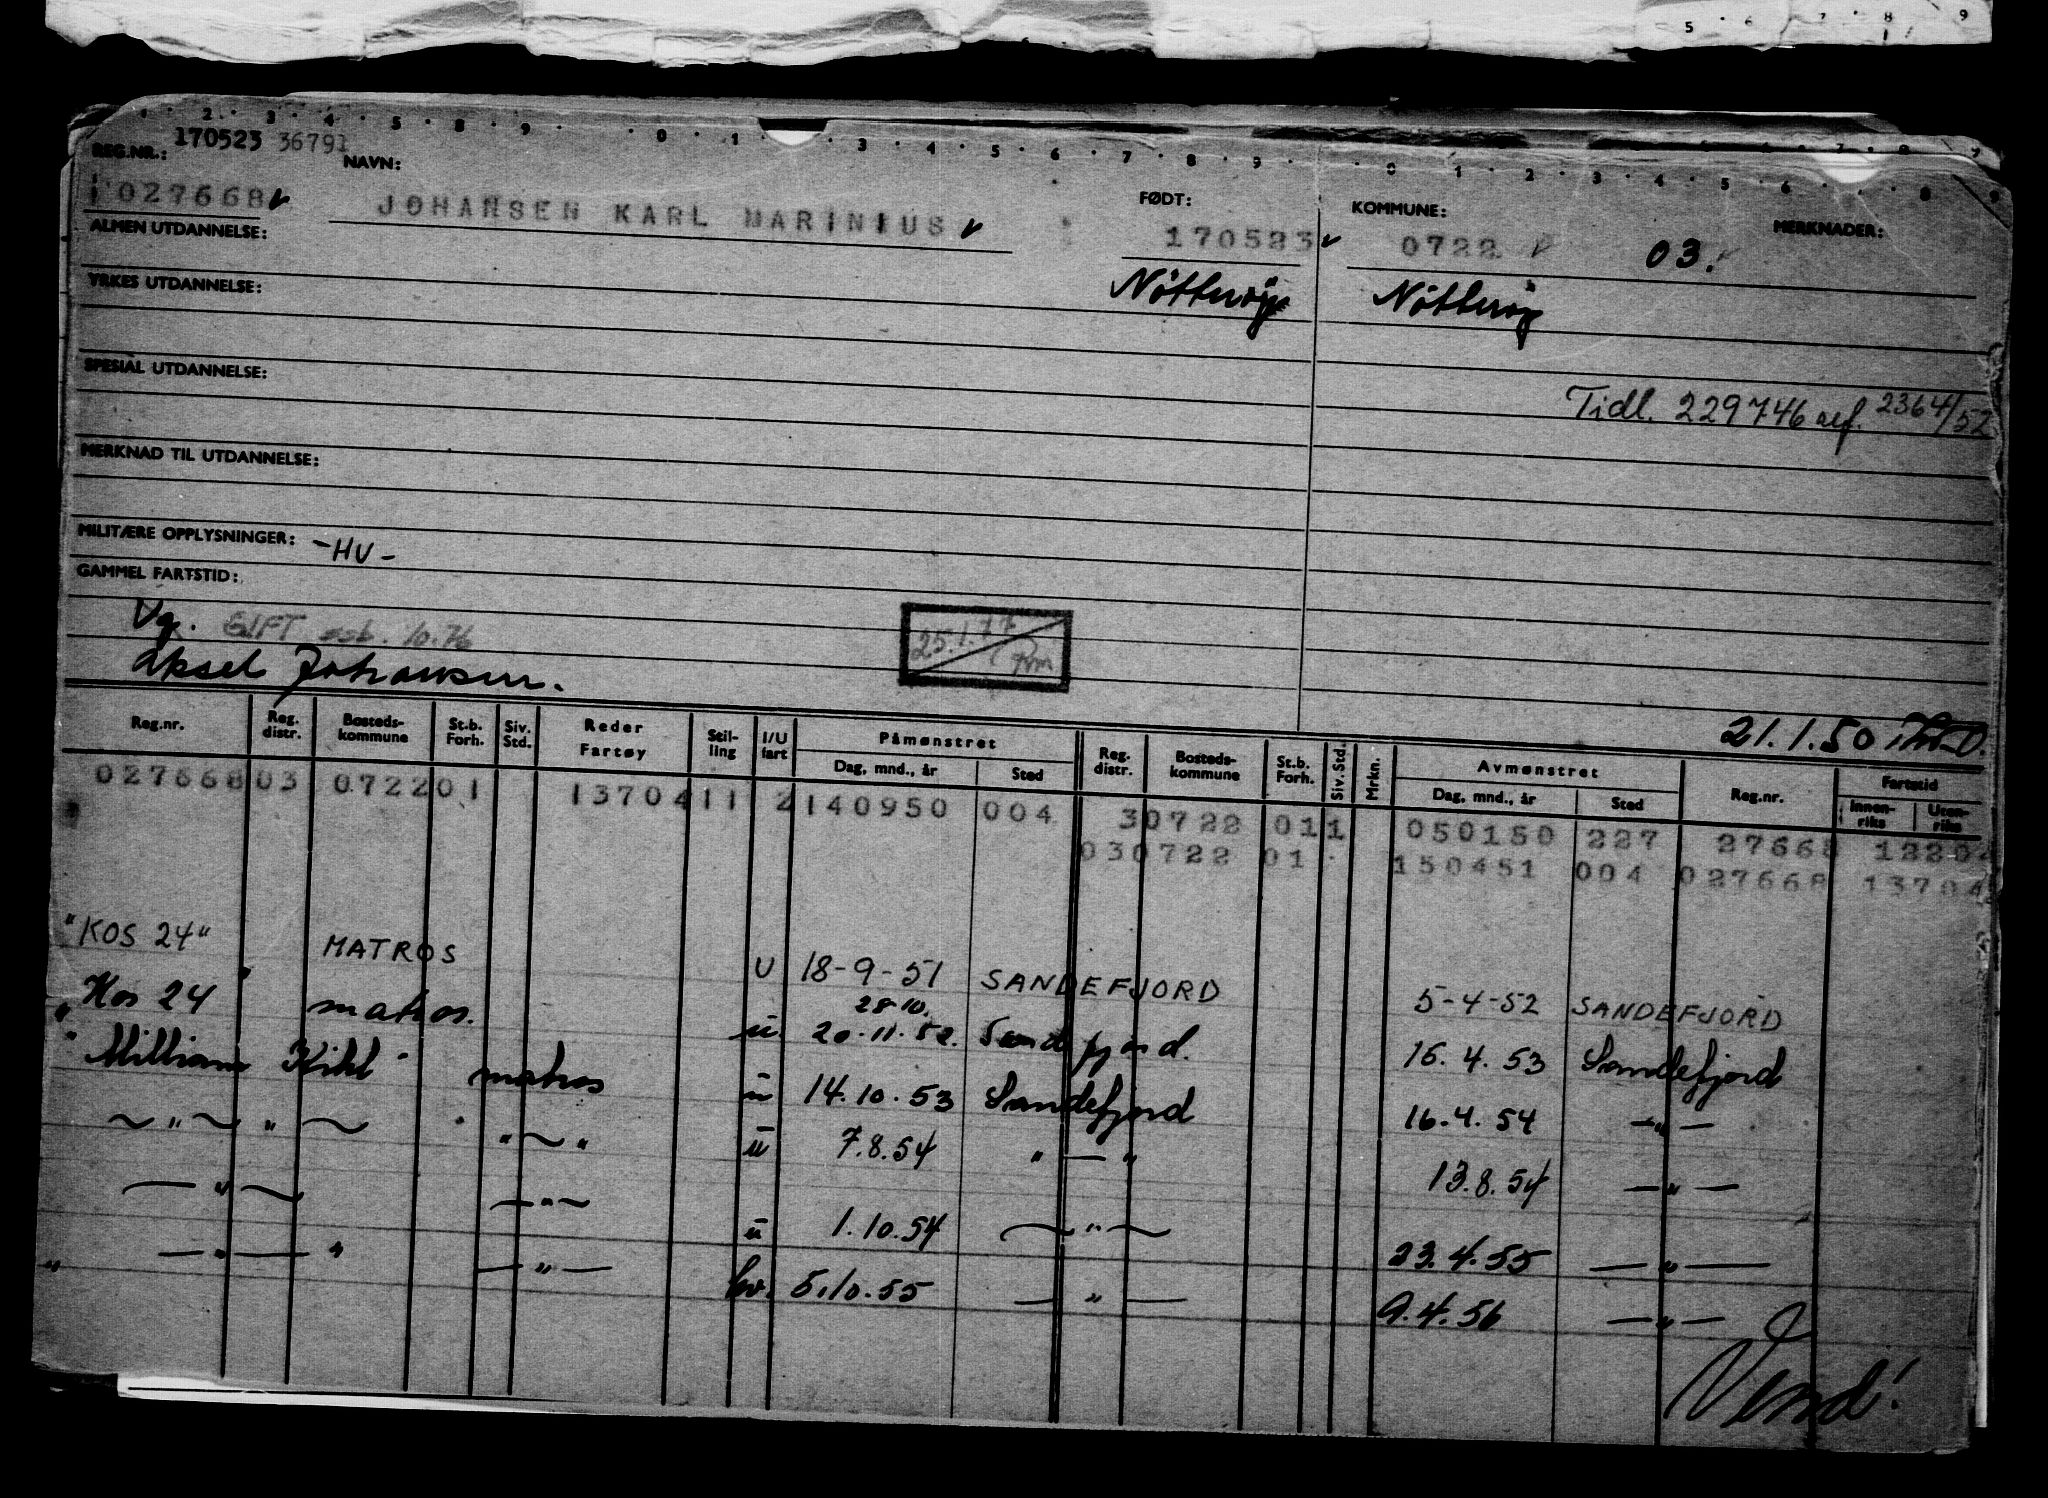 5 · 6 · 7 · 8 · 9
1 · 2 · 3 · 4 · 5 · 8 · 9 · 0 · 1 · 3 · 4 · 5 · 6 · 7 · 8 · 9 · 0 · 1 · 2 · 3 · 4 · 5 · 6 · 8 · 9
170523 36791
REG.NR.: NAVN: FØDT: KOMMUNE: MERKNADER:
027668 JOHANSEN KARL MARINIUS 170523 0722 03.
ALMEN UTDANNELSE:
Nötteröy Nötteröy
YRKES UTDANNELSE:
SPESIAL UTDANNELSE:
Tidl. 229746 ref. 2364/52
MERKNAD TIL UTDANNELSE:
MILITÆRE OPPLYSNINGER: -HV-
GAMMEL FARTSTID:
Vg. GIFT ssb. 10.76
25.1.77
Aksel Johansen.
21.1.50
Reg.nr. Reg. distr. Bosteds-kommune St.b. Forh. Siv. Std. Reder Fartøy Stil-ling I/U fart Påmønstret Dag, mnd., år Sted Reg. distr. Bosteds-kommune St.b. Forh. Siv. Std. Mrkn. Avmønstret Dag, mnd., år Sted Reg.nr. Fartstid Innen-riks Uten-riks
027668 03 0722 01 13704 11 2 140950 004 30722 011 050150 227 27668 12204
030722 01 150451 004 027668 13704
"KOS 24" MATROS U 18-9-51 SANDEFJORD 5-4-52 SANDEFJORD
28.10.
"Kos 24" matros. u 20.11.52. Sandefjord. 16.4.53 Sandefjord
" William Kihl" matros u 14.10.53 Sandefjord 16.4.54 — " —
~ " ~ " ~ " ~ " u 7.8.54 " — " 13.8.54 — " —
— " ~ — " ~ u 1.10.54 ~ " ~ 23.4.55 — " —
" — " — " — " — hv. 5.10.55 — " — 9.4.56 — " —
Vend!